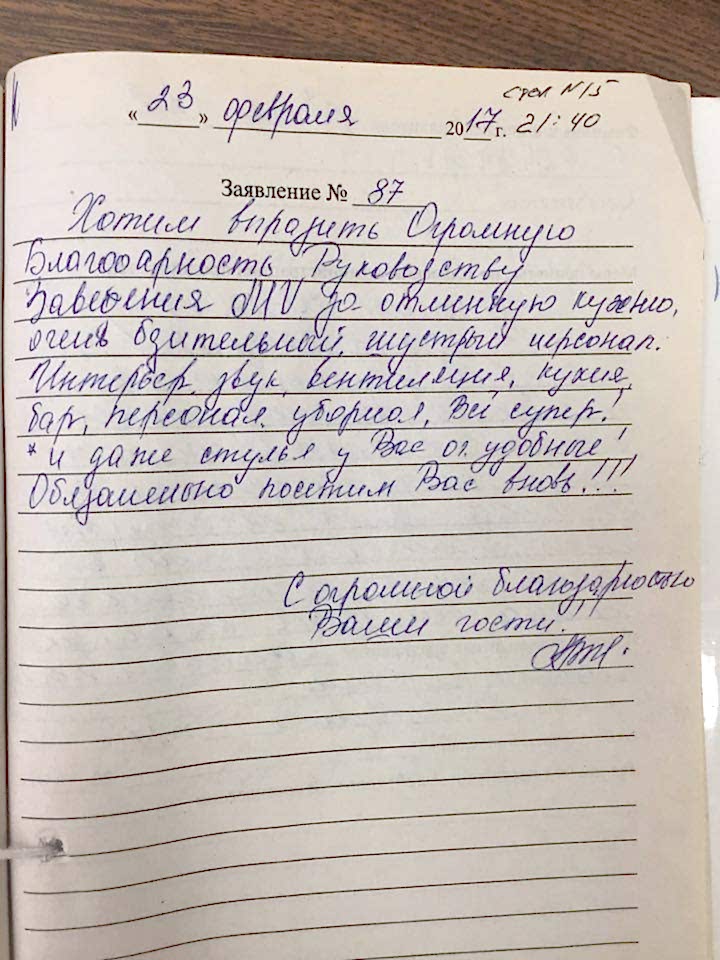 стол №15
« 23 » февраля 2017 г. 21:40
Заявление № 87
Хотим выразить Огромную
Благодарность Руководству
Заведения MV за отличную кухню,
очень бдительный, шустрый персонал.
Интерьер, звук, вентиляция, кухня,
бар, персонал, уборная, Всё супер!
* и даже стулья у Вас оч. удобные!
Обязательно посетим Вас вновь!!!
С огромной благодарностью
Ваши гости!